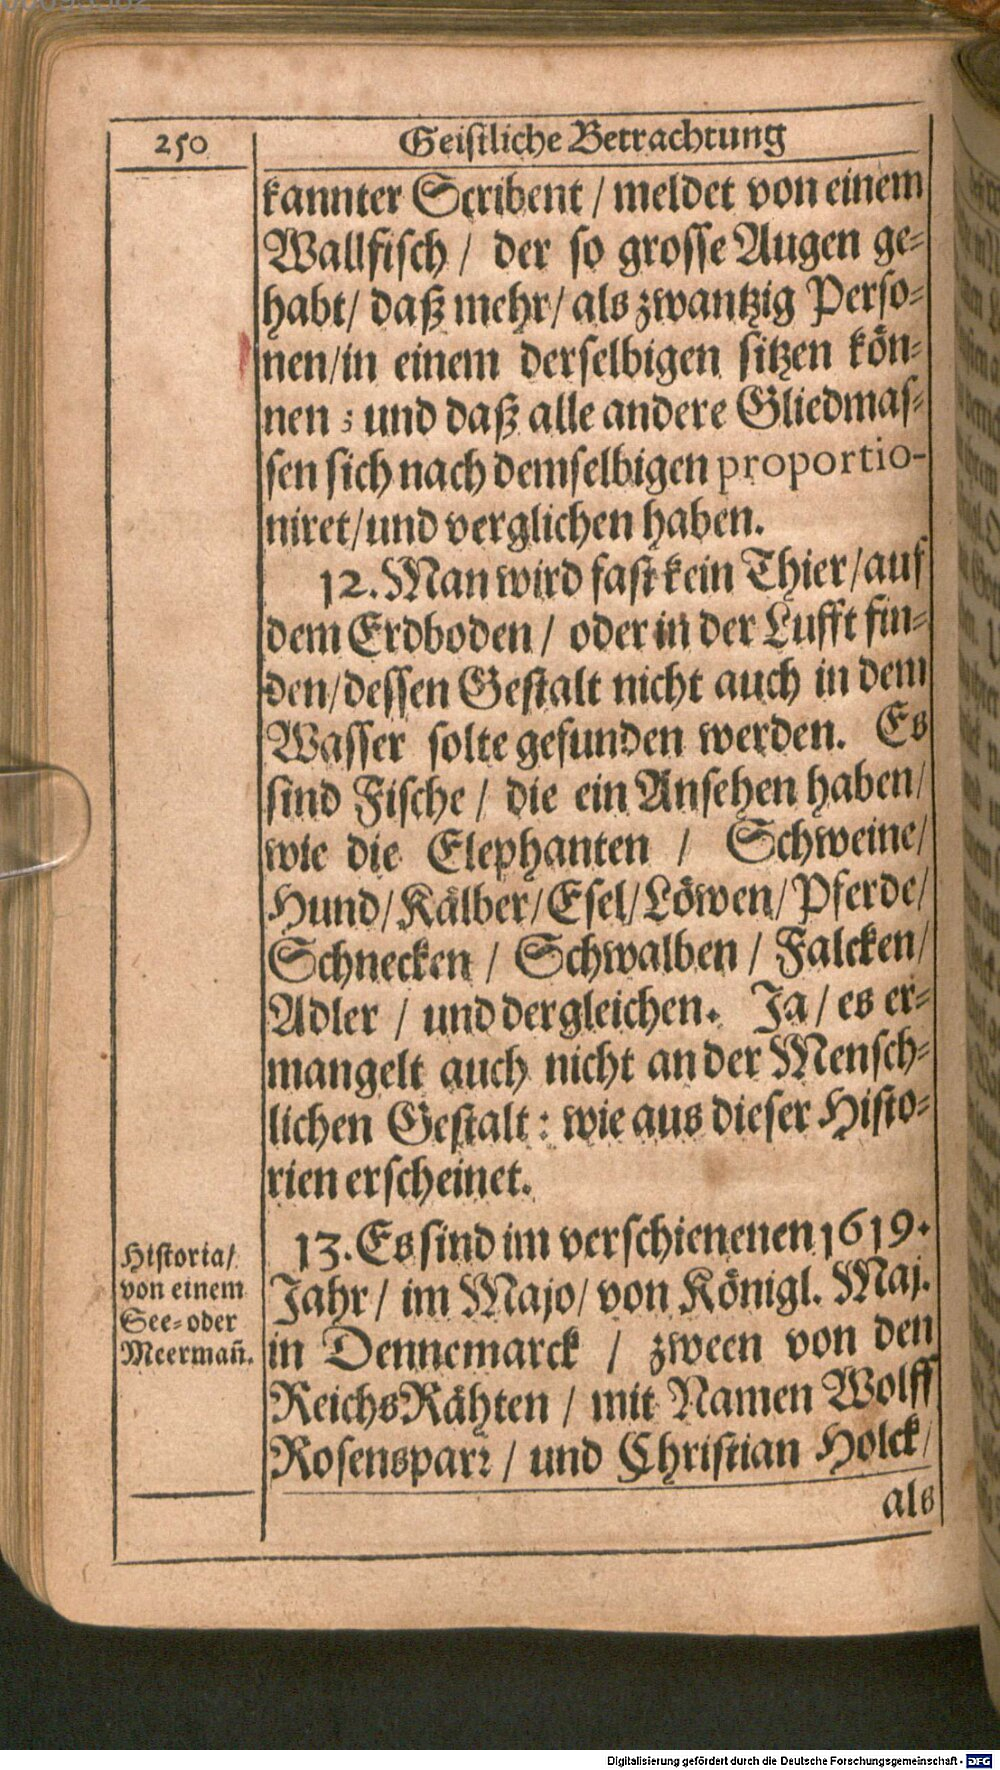 250
Geistliche Betrachtung
kannter Scribent / meldet von einem
Wallfisch / der so grosse Augen ge-
habt / daß mehr / als zwantzig Perso-
nen / in einem derselbigen sitzen kön-
nen ; und daß alle andere Gliedmas-
sen sich nach demselbigen proportio-
niret / und verglichen haben.
12. Man wird fast kein Thier / auf
dem Erdboden / oder in der Lufft fin-
den / dessen Gestalt nicht auch in dem
Wasser solte gefunden werden. Es
sind Fische / die ein Ansehen haben /
wie die Elephanten / Schweine /
Hund / Kälber / Esel / Löwen / Pferde /
Schnecken / Schwalben / Falcken /
Adler / und dergleichen. Ja / es er-
mangelt auch nicht an der Mensch-
lichen Gestalt : wie aus dieser Histo-
rien erscheinet.
Historia /
von einem
See- oder
Meermañ.
13. Es sind im verschienenen 1619.
Jahr / im Majo / von Königl. Maj.
in Dennemarck / zween von den
ReichsRähten / mit Namen Wolff
Rosensparr / und Christian Holck /
als
Digitalisierung gefördert durch die Deutsche Forschungsgemeinschaft - DFG